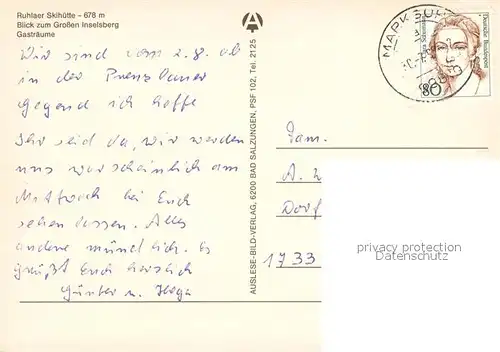 Ruhlaer Skihütte - 678 m
Blick zum Großen Inselsberg
Gasträume
Wir sind vom 2.8. ab
in der Prenzlauer
Gegend ich hoffe
Ihr seid da, wir werden
uns warscheinlich am
Mittwoch bei Euch
sehen lassen. Alles
andere mündlich. Es
grüßt Euch herzlich
Günter u. Helga
AUSLESE-BILD-VERLAG, 6200 BAD SALZUNGEN, PSF 102, Tel. 2125
MARKSUHL
Deutsche Bundespost
80
Fam.
A. 2
Dorf
1733
privacy protection
Datenschutz